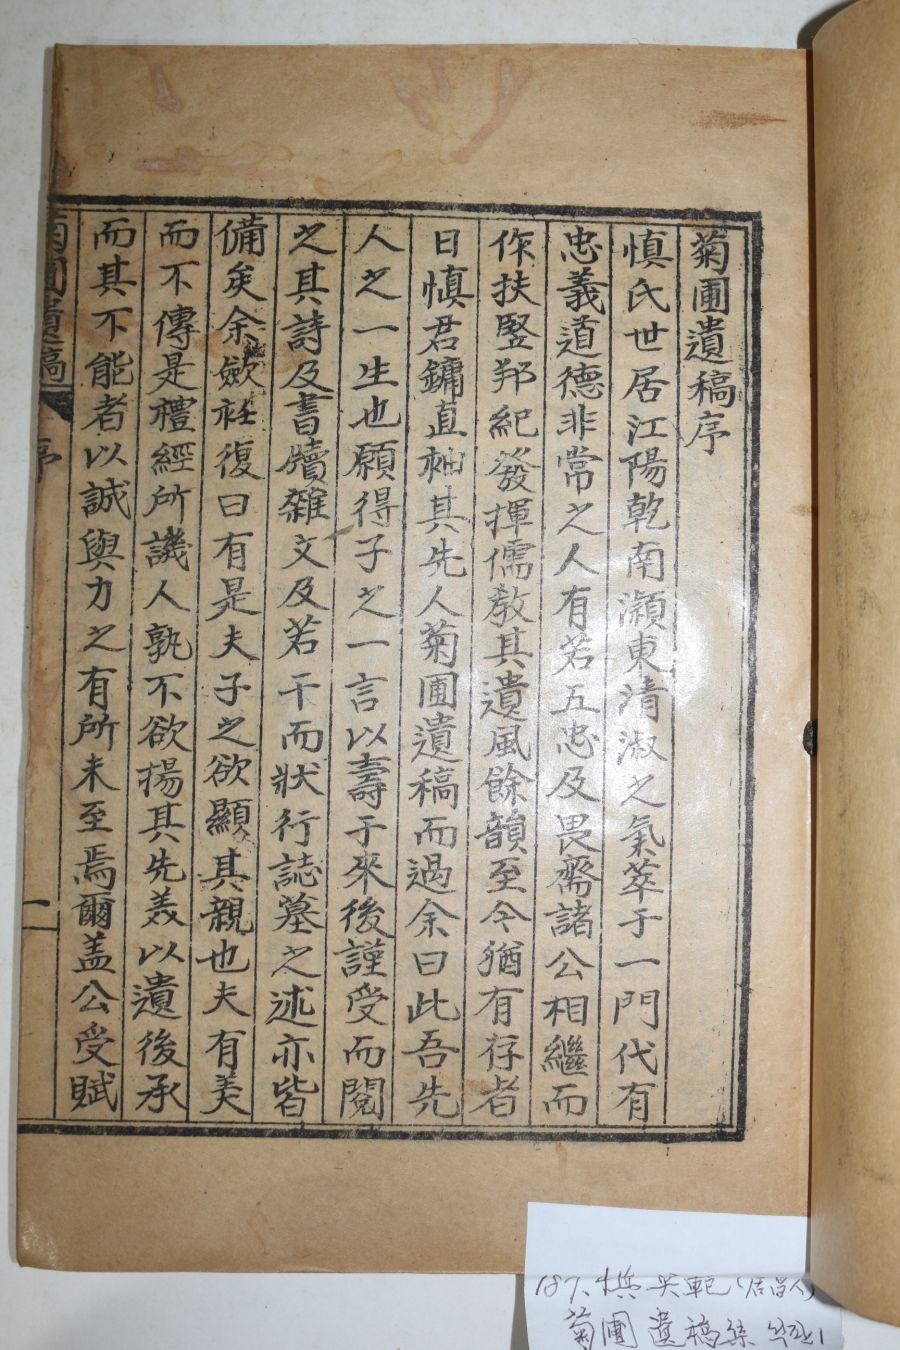 菊圃遺稿序
愼氏世居江陽乾南灝東淸淑之氣萃于一門代有
忠義道德非常之人有若五忠及畏齋諸公相繼而
作扶竪邦紀發揮儒敎其遺風餘韻至今猶有存者
日愼君鏞直袖其先人菊圃遺稿而過余曰此吾先
人之一生也願得子之一言以壽于來後謹受而閱
之其詩及書牘雜文及若干而狀行誌墓之述亦皆
備矣余歛衽復曰有是夫子之欲顯其親也夫有美
而不傳是禮經所譏人孰不欲揚其先美以遺後承
而其不能者以誠與力之有所未至焉爾盖公受賦
菊圃遺稿
序
一
187.
菊圃遺稿